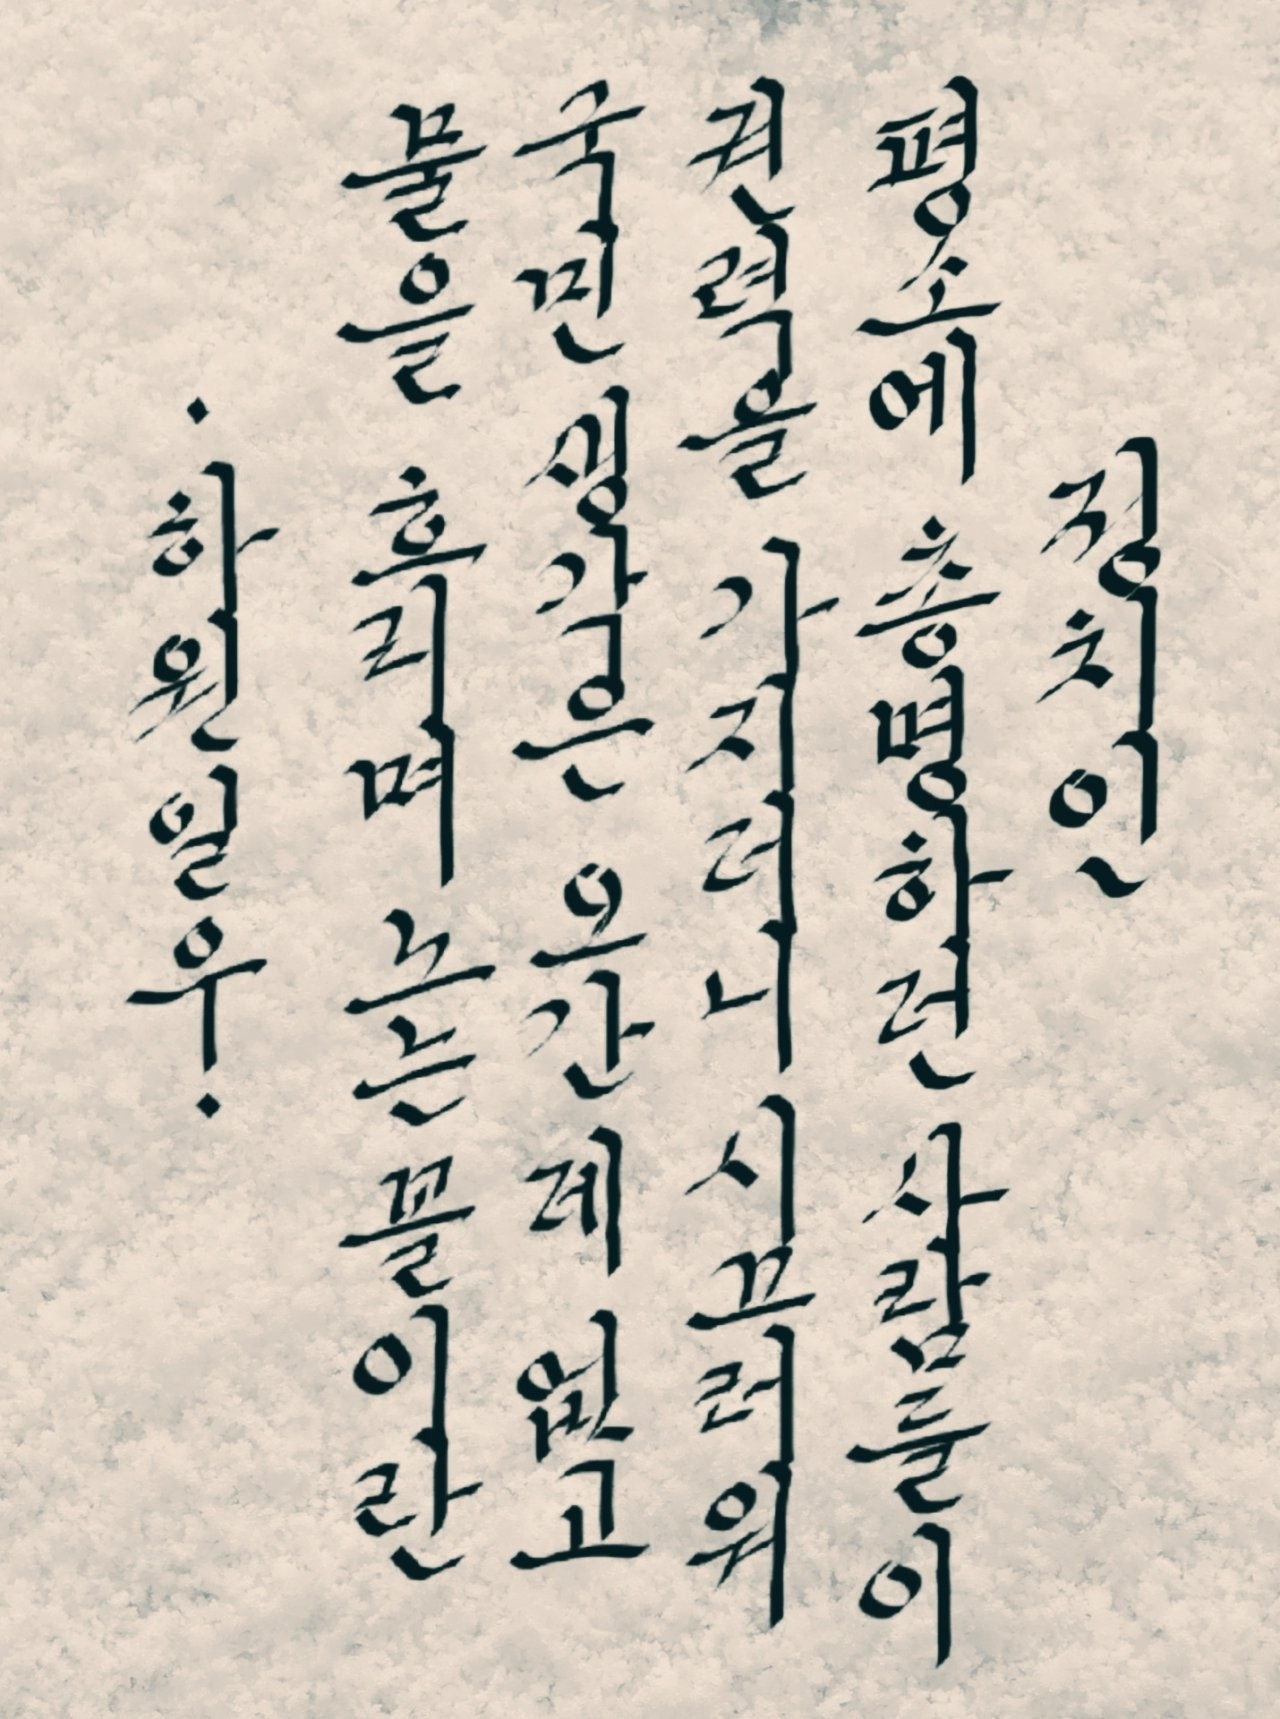 정치인
평소에 총명하던 사람들이
권력을 가지더니 시끄러워
국민 생각은 오간 데 없고
물을 흐리며 노는 꼴이란
· 하원일우 ·